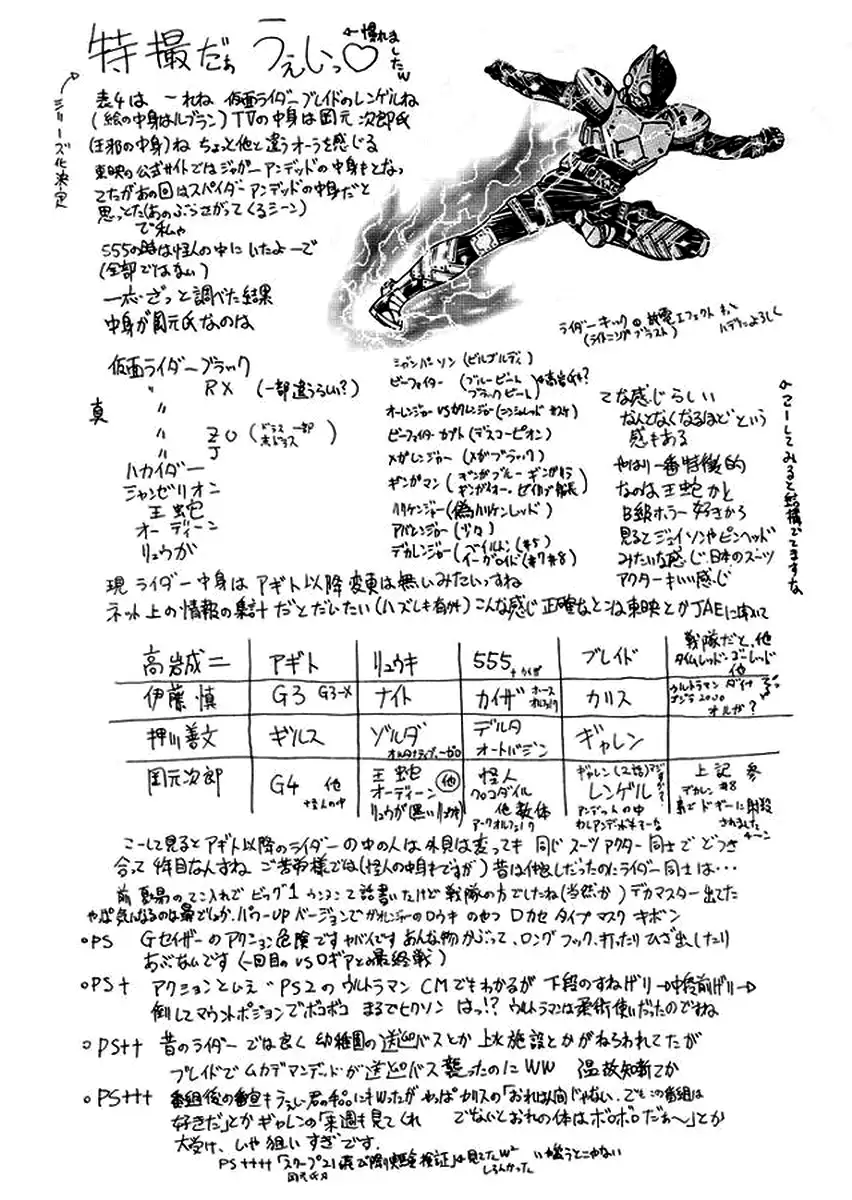 特撮だぁ うぇいっ♡
←慣れましたw
シリーズ化決定
表4は これね 仮面ライダーブレイドのレンゲルね
(絵の中身はルブラン) TVの中身は岡元次郎氏
(王邪の中身)ね ちょっと他と違うオーラを感じる
東映の公式サイトではジャガーアンデッドの中身もとなっ
てたがあの回はスパイダーアンデッドの中身だと
思っとた(あのぶらさがってくるシーン)
で私ゃ
555の時は怪人の中にいたよーで
(全部ではない)
一応ざっと調べた結果
中身が岡元氏なのは
ライダーキックの放電エフェクト
(ライトニングブラスト) ハデによろしく
仮面ライダーブラック
〃 RX (一部違うらしい?)
真 〃
〃 ZO (ドラス 一部
〃 J
ハカイダー
シャンゼリオン
王蛇
オーディーン
リュウガ
ジャンパーソン (ビルゴルディ)
ビーファイター (ブルービート ブラックビート) ←高岩氏も?
オーレンジャーVSカクレンジャー (ニンジャレッド
ビーファイターカブト (デスコーピオン)
メガレンジャー (メガブラック)
ギンガマン (ギンガブルー ギンガイオー
ハリケンジャー (偽ハリケンレッド)
アバレンジャー (少々)
デカレンジャー (ベイルドン (#5) イーガロイド (#7#8)
てな感じらしい
なんとなくなるほどという
感もある
やはり一番特徴的
なのは王蛇かと
B級ホラー好きから
見るとジェイソンやピンヘッド
みたいな感じ、日本のスーツ
アクターもいい感じ
←こーしてみると結構でてますな
現ライダー中身はアギト以降変更は無いみたいっすね
ネット上の情報の集計だとだいたい(ハズレも有elif)こんな感じ 正確なとこは東映とかJAEに聞いて
高岩成二 アギト リュウキ 555 +カイザ ブレイド 戦隊だと、他 タイムレッド・ゴーレッド 他
伊藤 慎 G3 G3-X ナイト カイザ ホースオルフェノク カリス ウルトラマンダイナ ゴジラ2000 オルガ?
押川善文 ギルス ゾルダ オルタナティブ・ゼロ デルタ オートバジン ギャレン
岡元次郎 G4 他 怪人の中 王蛇 オーディーン 他 リュウガ(黒いリュウキ) 怪人 クロコダイル 他数体 アークオルフェノク ギャレン(2話)マジですか? レンゲル アンデットの中 上記参 デカレン #8 ドギーに射殺されました
こーして見るとアギト以降のライダーの中の人は外見は変っても 同じスーツアクター同士で どつき
合って4年目なんすね ご苦労様では(怪人の中身もですが) 昔は他もしだったのにライダー同士は…
前 夏局のてこ入れで ビッグ1 ウンヌンて話書いたけど 戦隊の方でしたね(当然か) デカマスター出てた
やっぱ気になるのは鼻でしか、パワーUPバージョンでガオレンジャーのロウキのやつ ロカセタイプマスク キボン
○PS Gセイザーのアクション危険ですヤバイです あんな物かぶって、ロングフック、打ったりひざ出したり
あぶないです (一回目のvsロギアとの最終戦)
○PS+ アクションといえばPS2のウルトラマンCMでもわかるが 下段のすねげり→中段前げり→
倒してマウントポジションでボコボコ まるでヒクソン はっ!? ウルトラマンは柔術使いだったのですね
○PS++ 昔のライダーでは良く 幼稚園の送迎バスとか 上水施設とかがねらわれてたが
ブレイドでムカデアンデッドが送迎バス襲ったのにWW 温故知新てか
○PS+++ 番組後の番宣もうぇい君のにもwったが やっぱカリスの「おれは人間じゃない、でもこの番組は
好きだ」とかギャレンの「来週も見てくれ でないとおれの体はボロボロだぁ〜」とか
大受け、しゃ狙いすぎです。
PS++++ 「スクープ21
岡元氏が
しらんかった